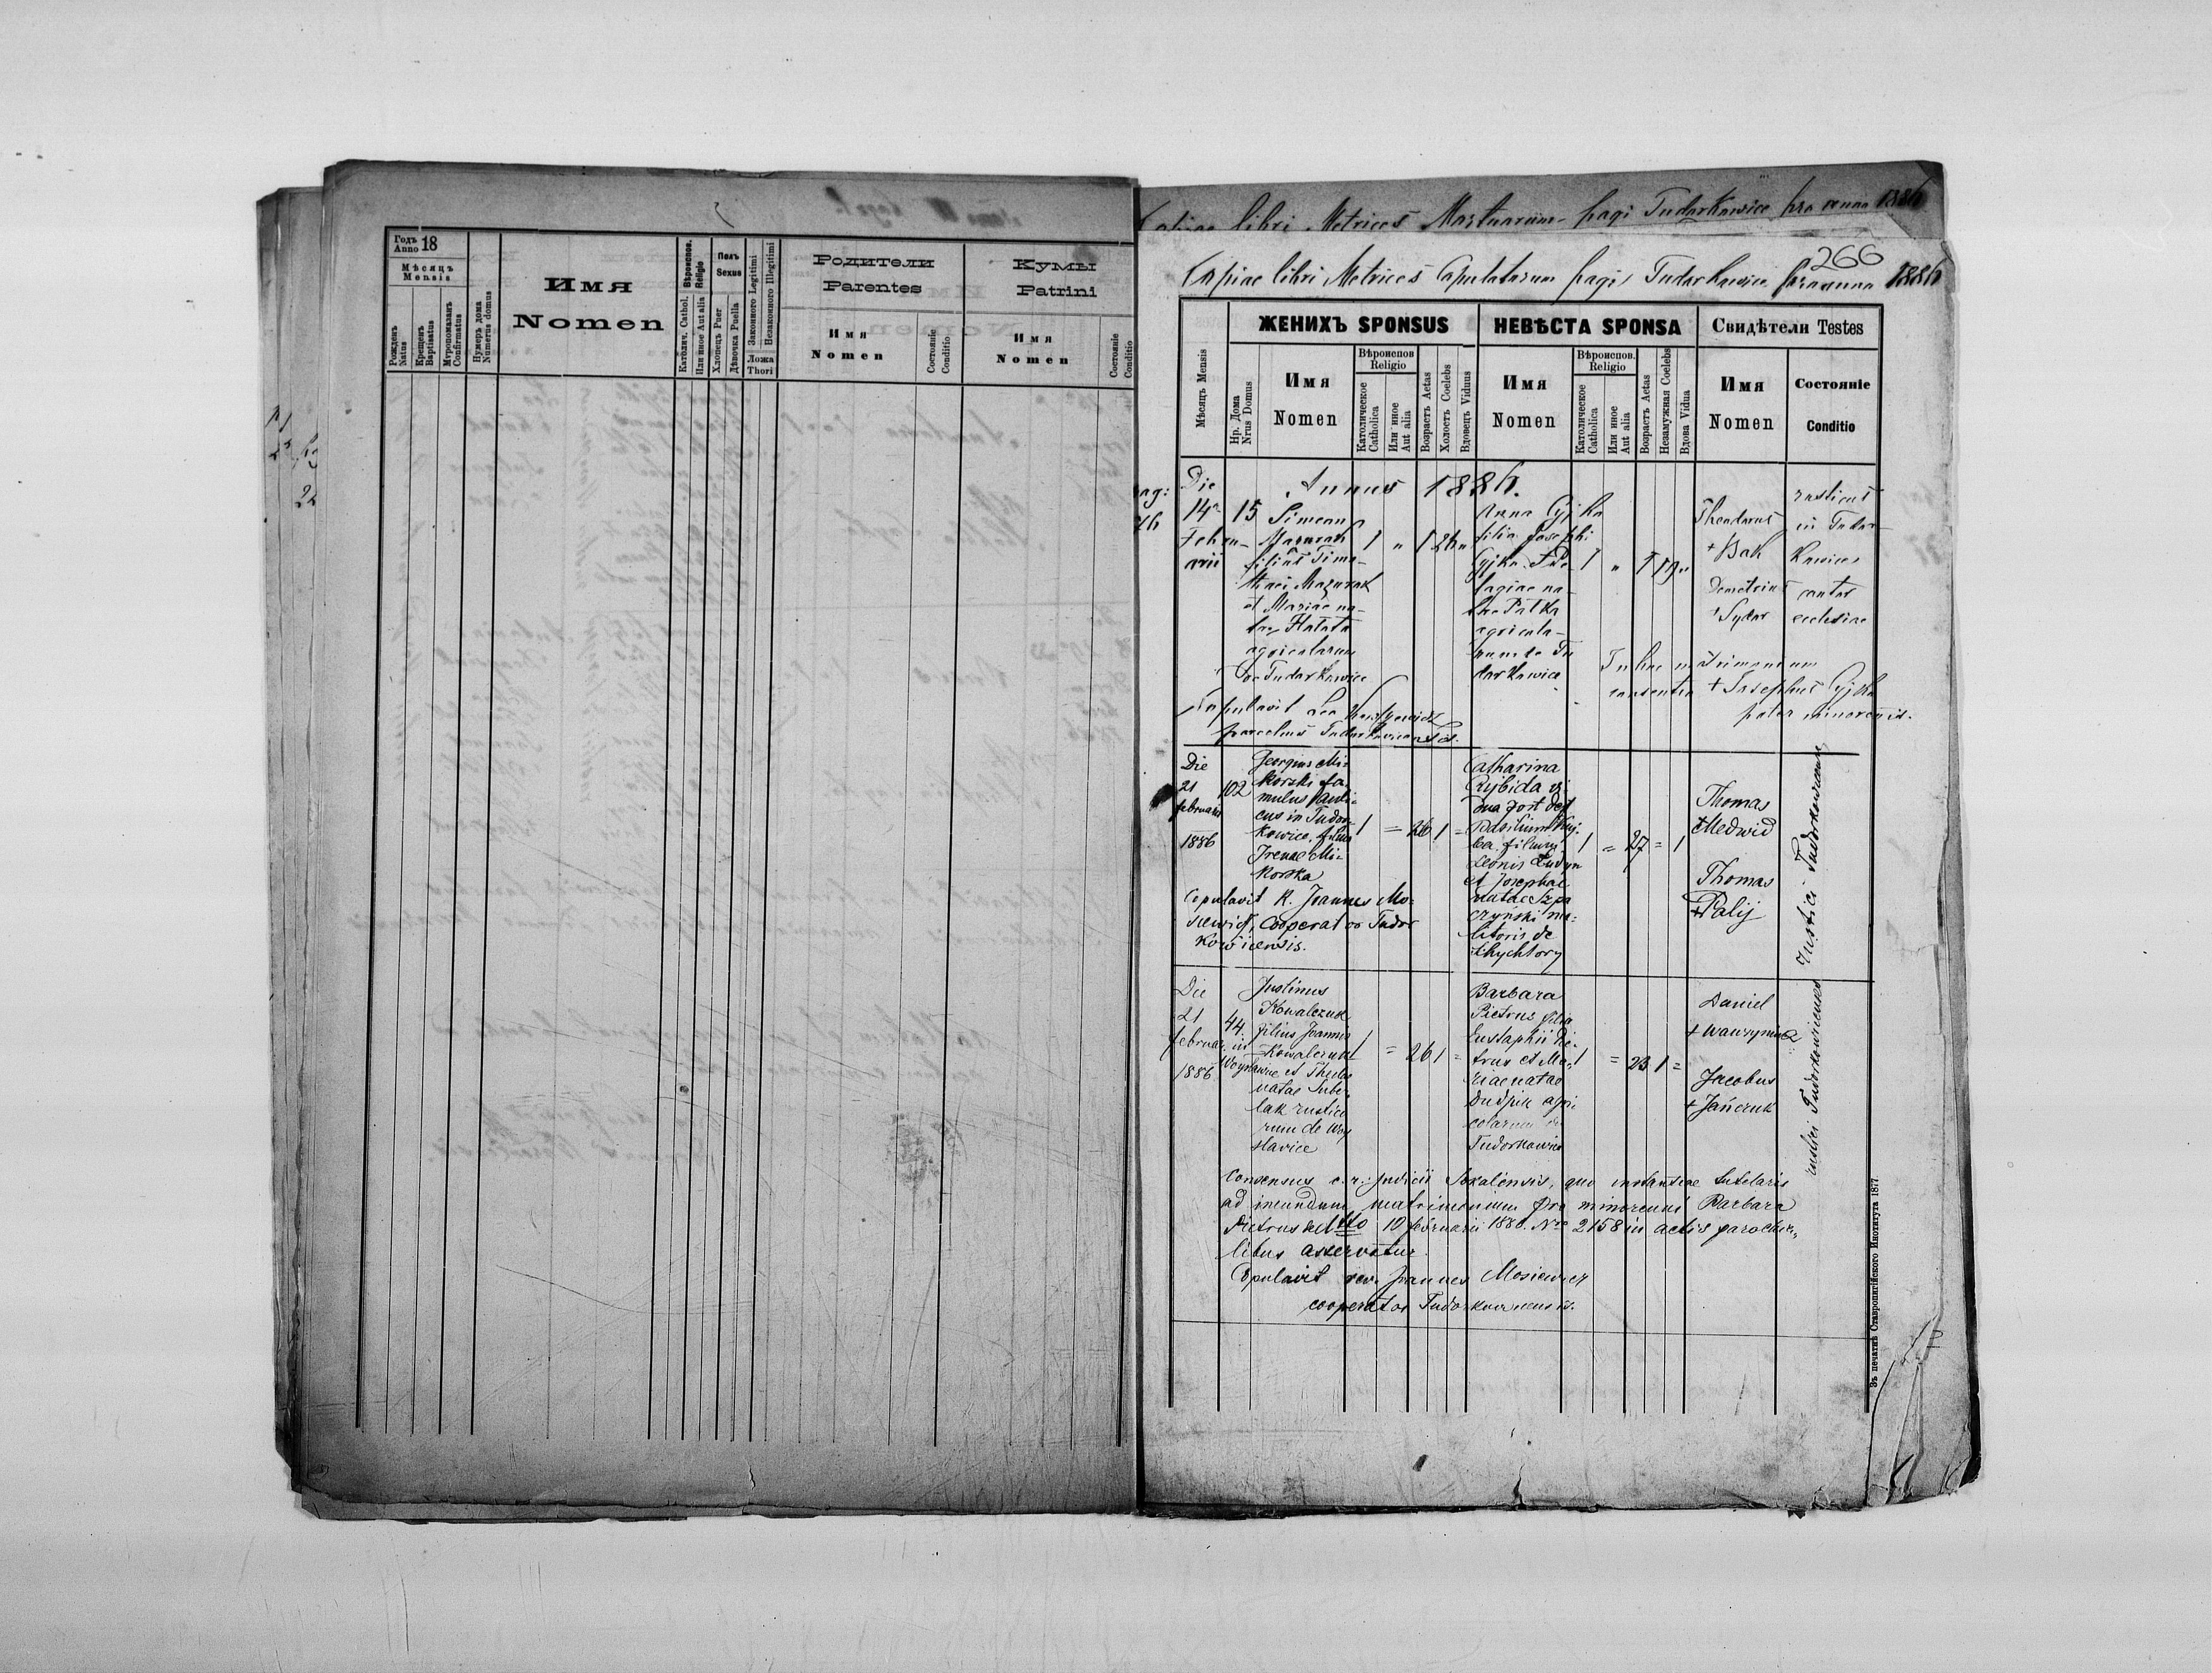 Годъ Anno 18
Мѣсяцъ
Mensis
Рожденъ Natus
Крещенъ Baptisatus
Мѵропомазанъ Confirmatus
Нумеръ дома Numerus domus
Имя
Nomen
Вѣроиспов. Religio
Католич. Cathol.
Или иное Aut alia
Полъ
Sexus
Хлопець Puer
Дѣвочка Puella
Законного Legitimi
Незаконного Illegitimi
Ложа
Thori
Родители
Parentes
Имя
Nomen
Состояніе
Conditio
Кумы
Patrini
Имя
Nomen
Состояніе
Conditio
libri Metrices Mortuorum pagi Tudorkowice pro anno 1886
266
Copiae libri Metrices Copulatorum pagi Tudorkowice pro anno 1886
Мѣсяцъ Mensis
ЖЕНИХЪ SPONSUS
НЕВѢСТА SPONSA
Свидѣтели Testes
Нр. Дома
Nrus Domus
Имя
Nomen
Вѣроиспов
Religio
Католическое
Catholica
Или иное
Aut alia
Возрастъ Aetas
Холостъ Coelebs
Вдовецъ Viduus
Имя
Nomen
Вѣроиспов.
Religio
Католическое
Catholica
Или иное
Aut alia
Возрастъ Aetas
Незамужная Coelebs
Вдова Vidua
Имя
Nomen
Состояніе
Conditio
Annus 1886.
Die
14a
Febru-
arii
15
Simeon
Mazurak
filius Timo-
thaei Mazurak
et Mariae na-
tae Hatata
agricolarum
de Tudorkowice
1 "
Anna Gyjka
filia Josephi
Gyjka
lagiae na-
tae Patka
agricola-
rum de Tu
dorkowice
1 "
19 "
Theodorus
+ Bak
Demetrius
+ Sydor
rusticus
in Tudor-
kowice
cantor
ecclesiae
In hoc matrimonium
consentio + Josephus Gyjka
pater minorennis.
Copulavit Leo
parochus Tudorkovicensis.
Die
21
februarii
1886
102
Georgius Mi-
korski fa-
mulus auli-
cus in Tudor-
kowice, filius
Irenae Mi-
korska
1 = 26 1 =
Catharina
Rybida vi
dua post def
Basilium
ba. filium
Leonis Ludyn
et Josephae
natae Szpa
czyński mi-
litoris de
Chychlory
1 = 27 = 1
Thomas
+ Medwid
Thomas
+ Palij
rustici Tudorkowicenses
Copulavit R. Joannes Mo-
siewicz, cooperator Tudor
kowicensis.
Die
21
februar.
1886
44.
in
Woysławice
Justinus
Kowalczuk
filius Joannis
Kowalczuk
et Theclae
natae Sube-
lak rustico
rum de Woy
sławice
1 = 26 1 =
Barbara
Pietrus filia
Eustaphii Pie-
trus et Ma-
riae natae
Dudzik agri
colarum de
Tudorkowice
1 = 23 1 =
Daniel
+ Wawryniuk
Jacobus
+ Jańczuk
rustici Tudorkowicenses
Consensus c. r. Judicii Sokalensis, qua instantiae tutelaris
ad ineundum matrimonium pro minorenni Barbara
Pietrus ddto 10 februarii 1886 Nro 2158 in actis parochia-
libus asservatur.
Copulavit rev. Joannes Mosiewicz
cooperator Tudorkowicensis.
Зъ печатнѣ Ставропигійского Института 1877.